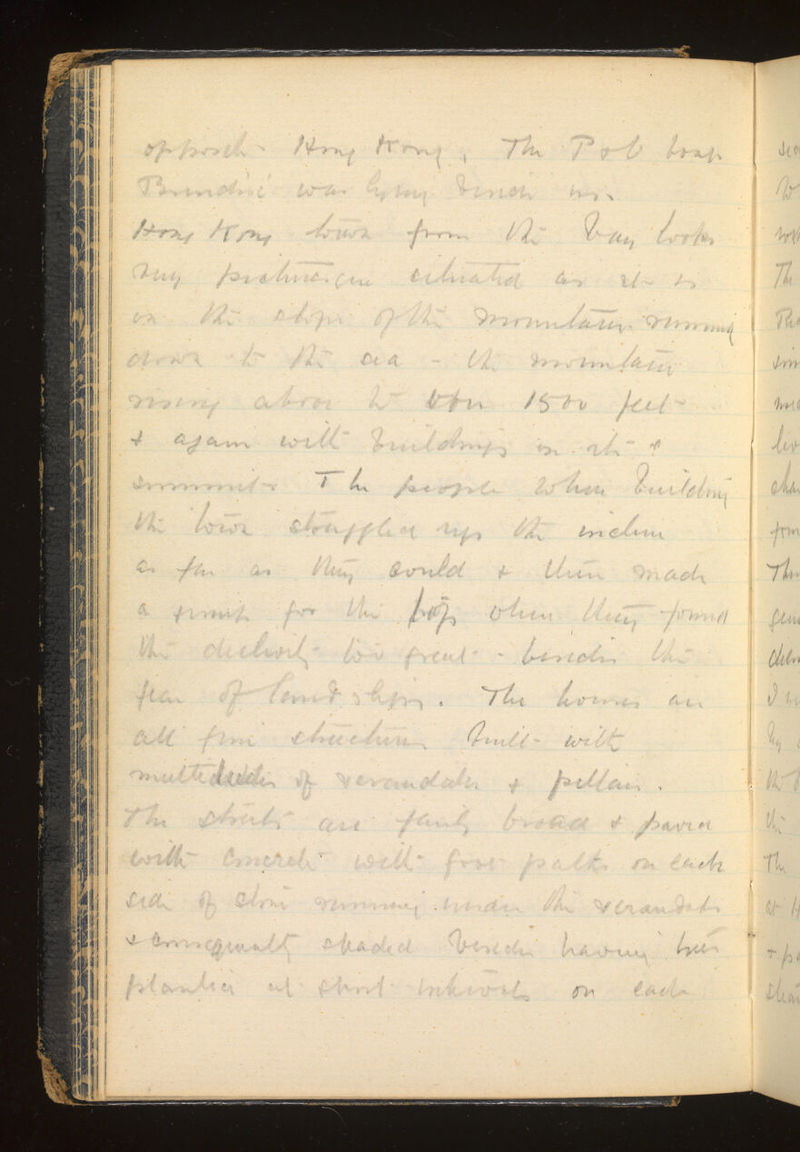 opposite Hong Kong. The P & O boat
Brindisi was lying beside us.
Hong Kong town from the bay looks
very picturesque situated as it is
on the slope of the mountain running
down to the sea - the mountain
rising above to over 1500 feet
& again with buildings on its
summit. The people when building
the town struggled up the incline
as far as they could & then made
a jump for the top when they found
the declivity too great - besides the
fear of land slips. The houses are
all fine structures built with
multitudes of verandahs & pillars.
The streets are fairly broad & paved
with concrete with foot paths on each
side of stone running under the verandahs
& consequently shaded besides having trees
planted at short intervals on each